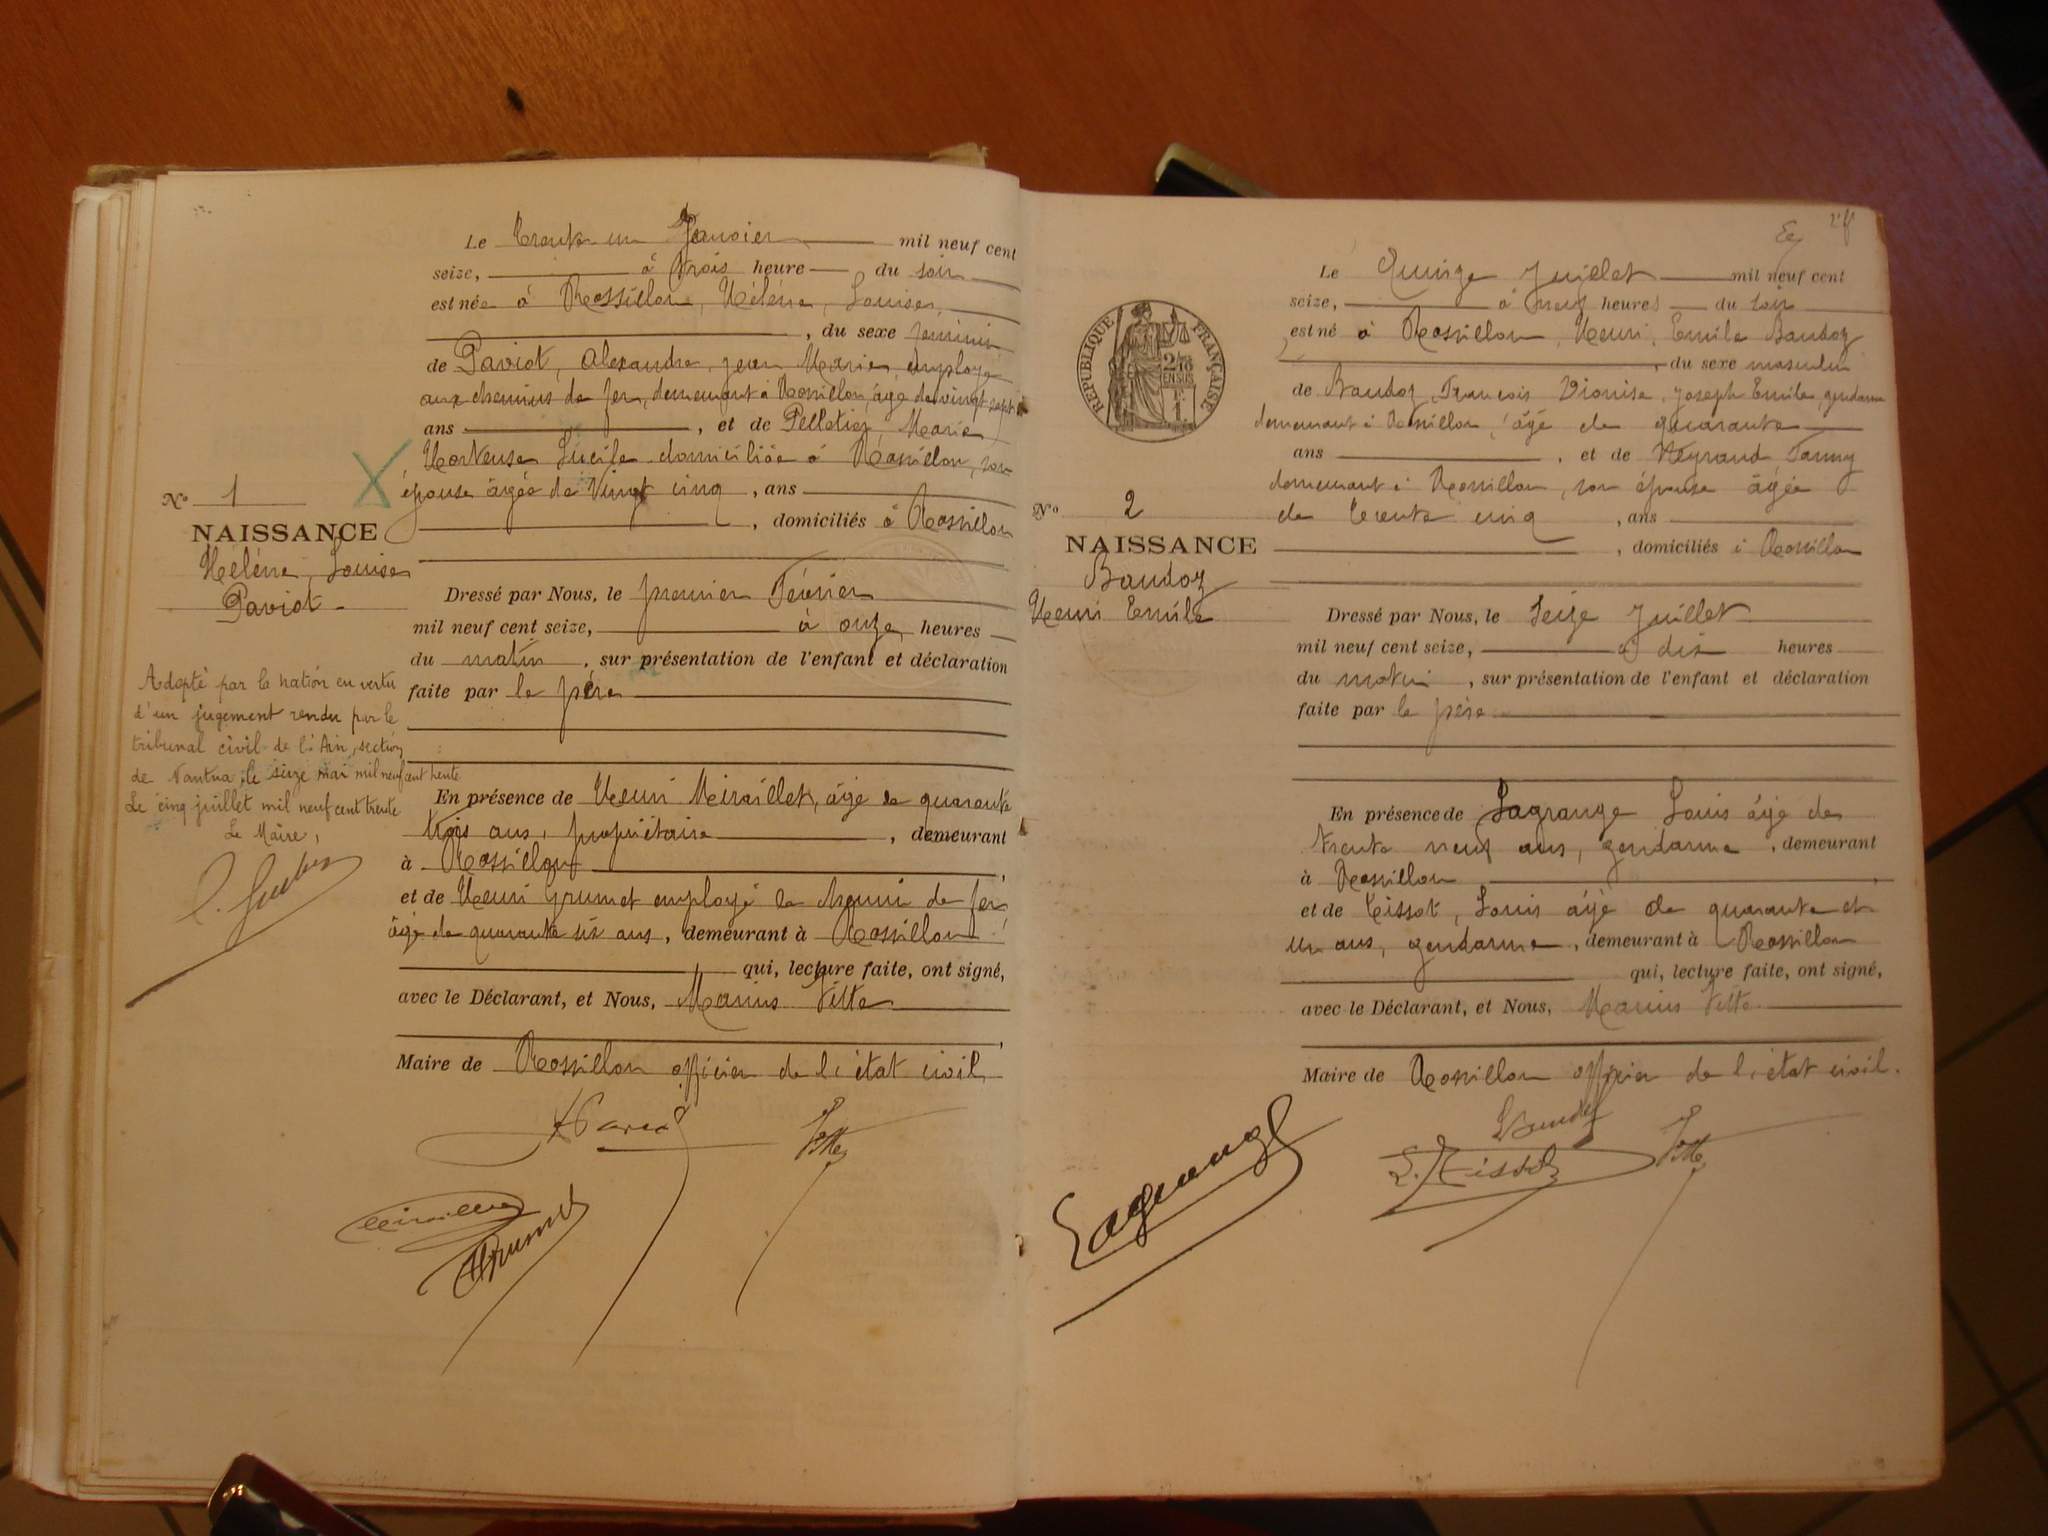 Le Trente un Janvier mil neuf cent
seize, à trois heure du soir
est née à Rossillon, Hélène, Louise,
, du sexe féminin
de Paviot, Alexandre, Jean Marie, employé
aux chemins de fer, demeurant à Rossillon, âgé de vingt sept
ans , et de Pelletier, Marie
Hortense Lucile domiciliée à Rossillon, son
épouse âgée de Vingt cinq , ans
, domiciliés à Rossillon
No 1
NAISSANCE
Hélène, Louise
Paviot
Dressé par Nous, le premier Février
mil neuf cent seize, à onze heures
du matin , sur présentation de l'enfant et déclaration
faite par le père
Adopté par la nation en vertu
d'un jugement rendu par le
tribunal civil de l'Ain, section
de Nantua, le seize mai mil neuf cent trente
Le cinq juillet mil neuf cent trente
Le Maire,
En présence de Henri Miraillet, âgé de quarante
trois ans, propriétaire , demeurant
à Rossillon
et de Henri Grumet employé de chemin de fer
âgé de quarante six ans, demeurant à Rossillon
qui, lecture faite, ont signé,
avec le Déclarant, et Nous, Marius Vitte
Maire de Rossillon officier de l'état civil
Vitte
Grumet
2 f
REPUBLIQUE FRANÇAISE
EN SUS
Le Quinze Juillet mil neuf cent
seize, à neuf heures du soir
est né à Rossillon, Henri, Emile Baudoz
, du sexe masculin
de Baudoz, François Joseph Emile, gendarme
demeurant à Rossillon, âgé de quarante
ans , et de Neyraud Fanny
demeurant à Rossillon, son épouse âgée
de trente cinq , ans
, domiciliés à Rossillon
No 2
NAISSANCE
Baudoz
Henri Emile
Dressé par Nous, le Seize Juillet
mil neuf cent seize, à dix heures
du matin , sur présentation de l'enfant et déclaration
faite par le père
En présence de Lagrange Louis âgé de
trente neuf ans, gendarme , demeurant
à Rossillon
et de Tissot, Louis âgé de quarante et
un ans, gendarme , demeurant à Rossillon
qui, lecture faite, ont signé,
avec le Déclarant, et Nous, Marius Vitte
Maire de Rossillon officier de l'état civil.
Lagrange
L. Tissot
Vitte